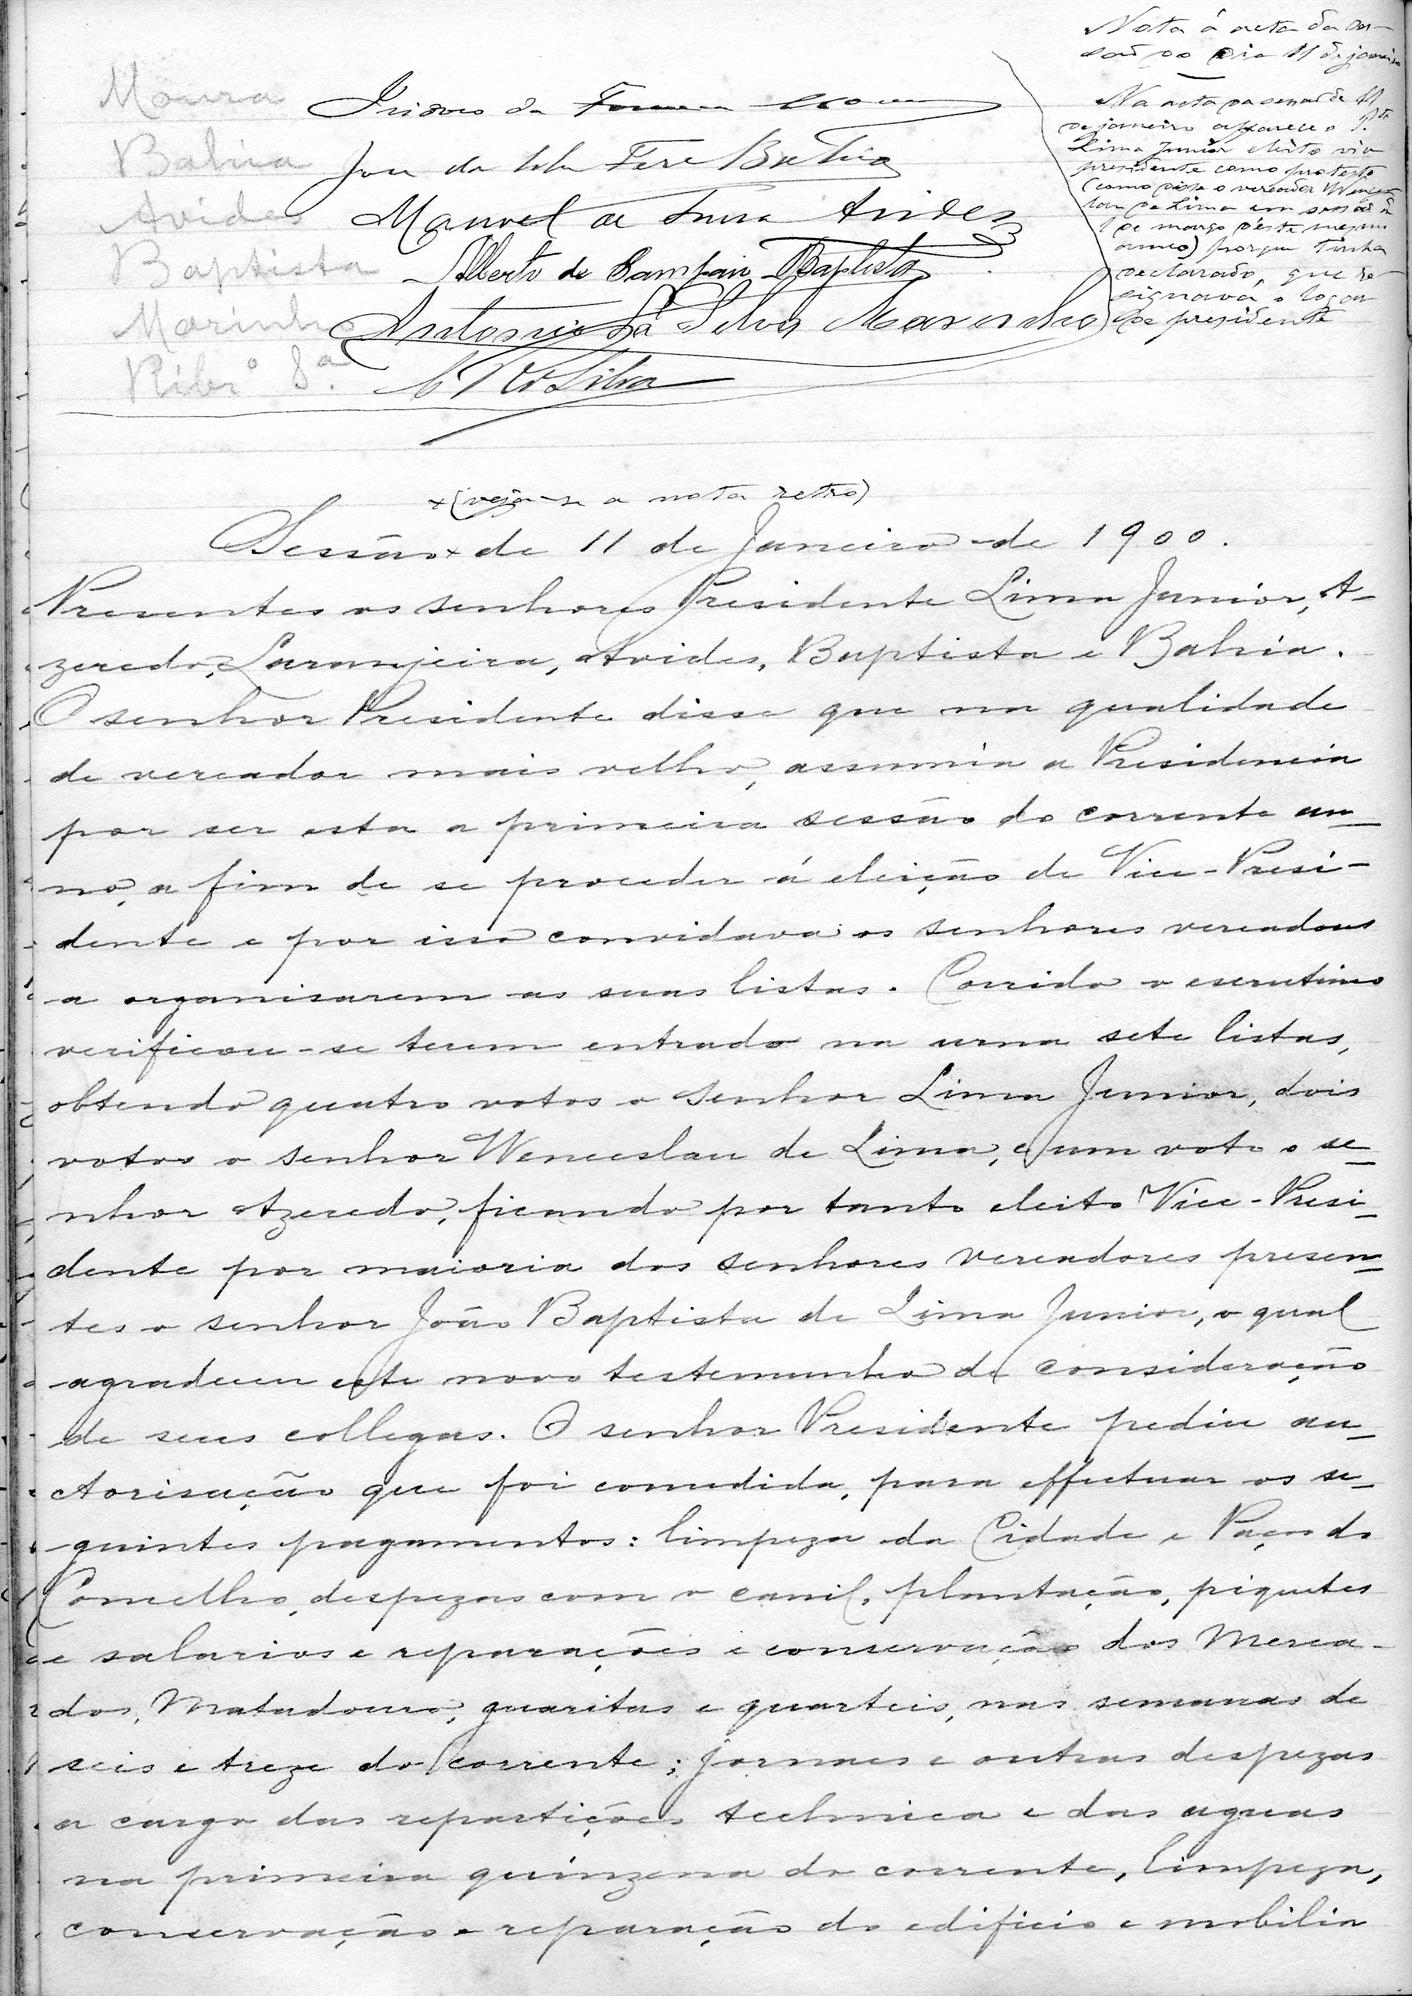 Nota á acta da ses-
são do dia 11 de janeiro
Na acta da sessão de 11
de janeiro apparece o Sr.
Lima Junior eleito vice
presidente como protesto
(como disse o vereador Wences-
lau de Lima em sessão de
1 de março d'este mesmo
anno) porque tinha
declarado, que re-
signava o logar
de presidente
Moura
Isidoro da Fonseca Moura
Bahia
José da Silva Ferr Bahia
Avides
Manoel de Avides
Baptista
Alberto de Sampaio Baptista
Marinho
Antonio da Silva Marinho
Ribrº Sª
Silva
x (veja-se a nota retro)
Sessão x de 11 de Janeiro de 1900.
Presentes os senhores Presidente Lima Junior, A-
zeredo, Laranjeira, Avides, Baptista e Bahia.
O senhor Presidente disse que na qualidade
de vereador mais velho, assumia a Presidencia
por ser esta a primeira sessão do corrente an-
no, a fim de se proceder á eleição de Vice-Presi-
dente e por isso convidava os senhores vereadores
a organisarem as suas listas. Corrido o escrutinio
verificou-se terem entrado na urna sete listas,
obtendo quatro votos o senhor Lima Junior, dois
votos o senhor Wenceslau de Lima, e um voto o se-
nhor Azeredo, ficando por tanto eleito Vice-Presi-
dente por maioria dos senhores vereadores presen-
tes o senhor João Baptista de Lima Junior, o qual
agradeceu este novo testemunho de consideração
de seus collegas. O senhor Presidente pediu au-
ctorisação que foi concedida, para effectuar os se-
guintes pagamentos: limpeza da Cidade e Paços do
Concelho, despezas com o canil, plantação, piquetes
e salarios e reparações e conservação dos Merca-
dos, Matadouro, guaritas e quarteis, nas semanas de
seis e treze do corrente; jornaes e outras despezas
a cargo das repartições technica e das aguas
na primeira quinzena do corrente, limpeza,
conservação e reparação do edificio e mobilia